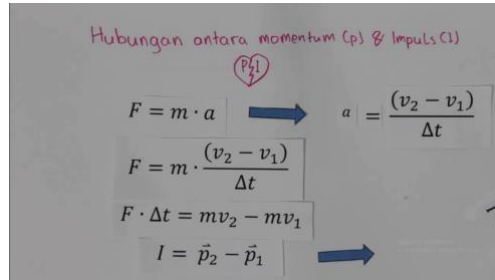 Hubungan antara momentum (p) & Impuls (I)
P I
F = m · a
a = (v₂ − v₁) / Δt
F = m · (v₂ − v₁) / Δt
F · Δt = mv₂ − mv₁
I = p⃗₂ − p⃗₁